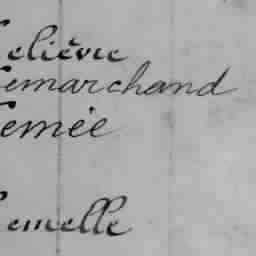 Lelièvre
Lemarchand
Lemée
Lemelle